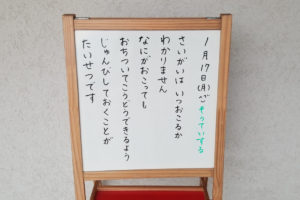 1月17日(月)
そうていする
さいがいは いつおこるか
わかりません
なにがおこっても
おちついてこうどうできるよう
じゅんびしておくことが
たいせつです